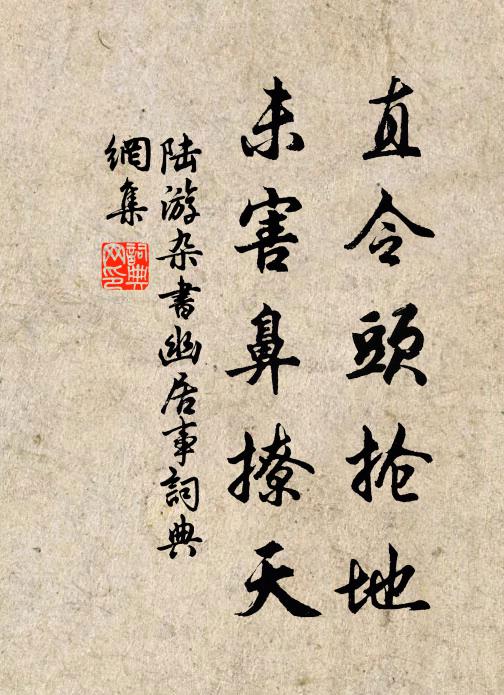 直令頭搶地
未害鼻撩天
陸游杂書幽居事詞典
網集
詞典
网印